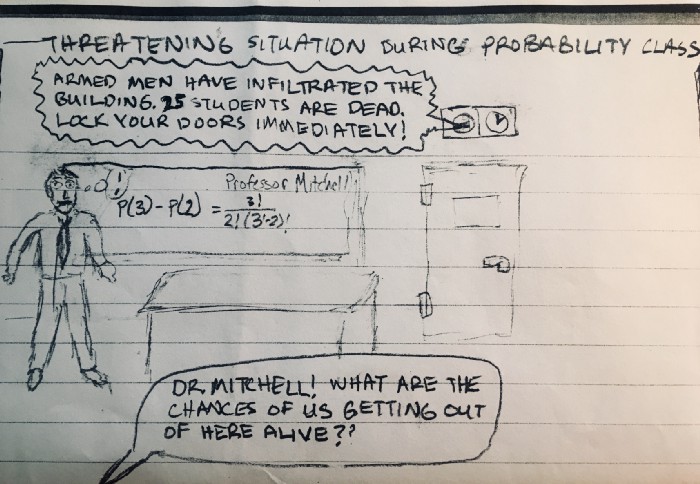 THREATENING SITUATION DURING PROBABILITY CLASS
ARMED MEN HAVE INFILTRATED THE
BUILDING. 25 STUDENTS ARE DEAD.
LOCK YOUR DOORS IMMEDIATELY!
Professor Mitchell
P(3)-P(2) = 3!
2!(3-2)!
DR. MITCHELL! WHAT ARE THE
CHANCES OF US GETTING OUT
OF HERE ALIVE??